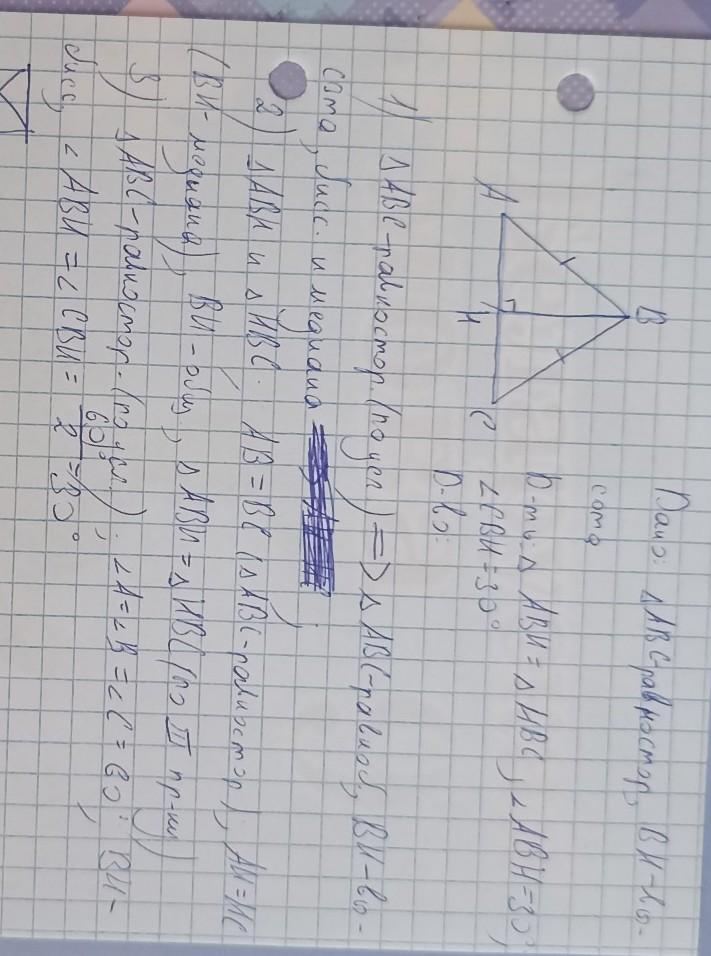 B
A
H
C
Дано: △ABC-равностор, BH-вы-
сота
Д-ть: △ABH = △HBC, ∠ABH=30°,
∠CBH=30°
Д-во:
1) △ABC-равностор. (по усл) => △ABC-равноб, BH-вы-
сота, бисс. и медиана
2) △ABH и △HBC: AB = BC (△ABC-равностор), AH=HC
(BH-медиана), BH-общ, △ABH = △HBC (по III пр-ку)
3) △ABC-равностор. (по усл): ∠A=∠B=∠C=60°. BH-
бисс, ∠ABH = ∠CBH = 60°/2 = 30°